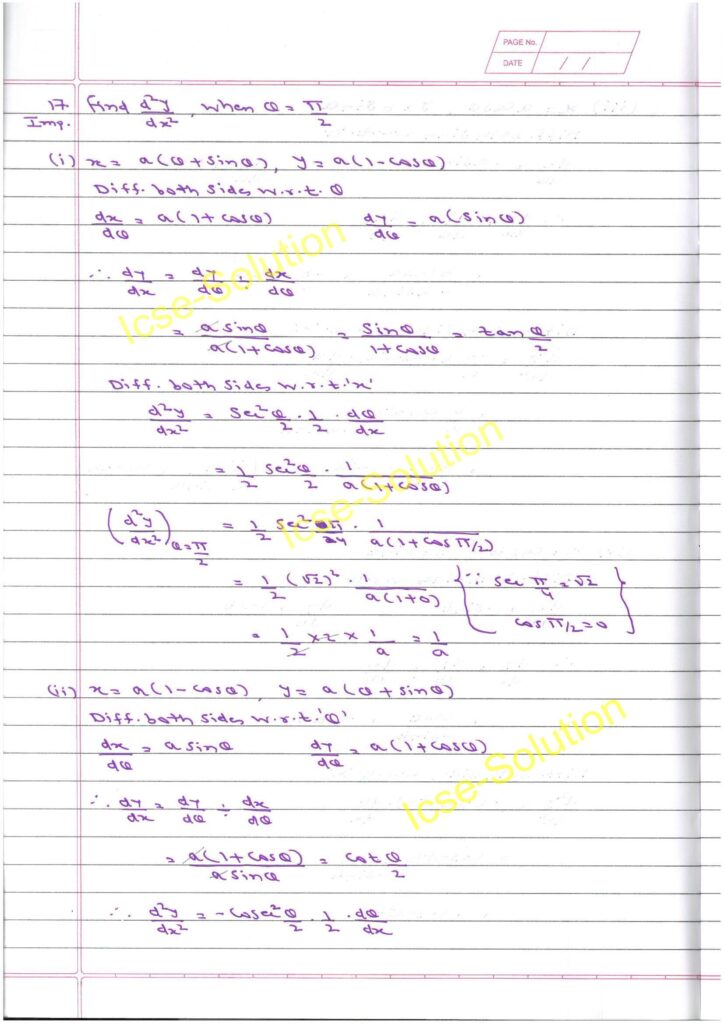 PAGE No.
DATE / /
17 Find d²y/dx², when θ = π/2
Imp.
(i) x = a(θ + sinθ), y = a(1 - cosθ)
Diff. both sides w.r.t. θ
dx/dθ = a(1 + cosθ) dy/dθ = a(sinθ)
∴ dy/dx = dy/dθ ÷ dx/dθ
= a sinθ / a(1 + cosθ) = sinθ / 1 + cosθ = tan θ/2
Diff. both sides w.r.t. 'x'
d²y/dx² = sec² θ/2 · 1/2 · dθ/dx
= 1/2 sec² θ/2 · 1/a(1 + cosθ)
(d²y/dx²)θ = π/2 = 1/2 sec² π/4 · 1/a(1 + cos π/2)
= 1/2 (√2)² · 1/a(1+0) {∵ sec π/4 = √2
cos π/2 = 0}
= 1/2 × 2 × 1/a = 1/a
(ii) x = a(1 - cosθ), y = a(θ + sinθ)
Diff. both sides w.r.t. 'θ'
dx/dθ = a sinθ dy/dθ = a(1 + cosθ)
∴ dy/dx = dy/dθ ÷ dx/dθ
= a(1 + cosθ) / a sinθ = cot θ/2
∴ d²y/dx² = - cosec² θ/2 · 1/2 · dθ/dx
Icse-Solution
Icse-Solution
Icse-Solution